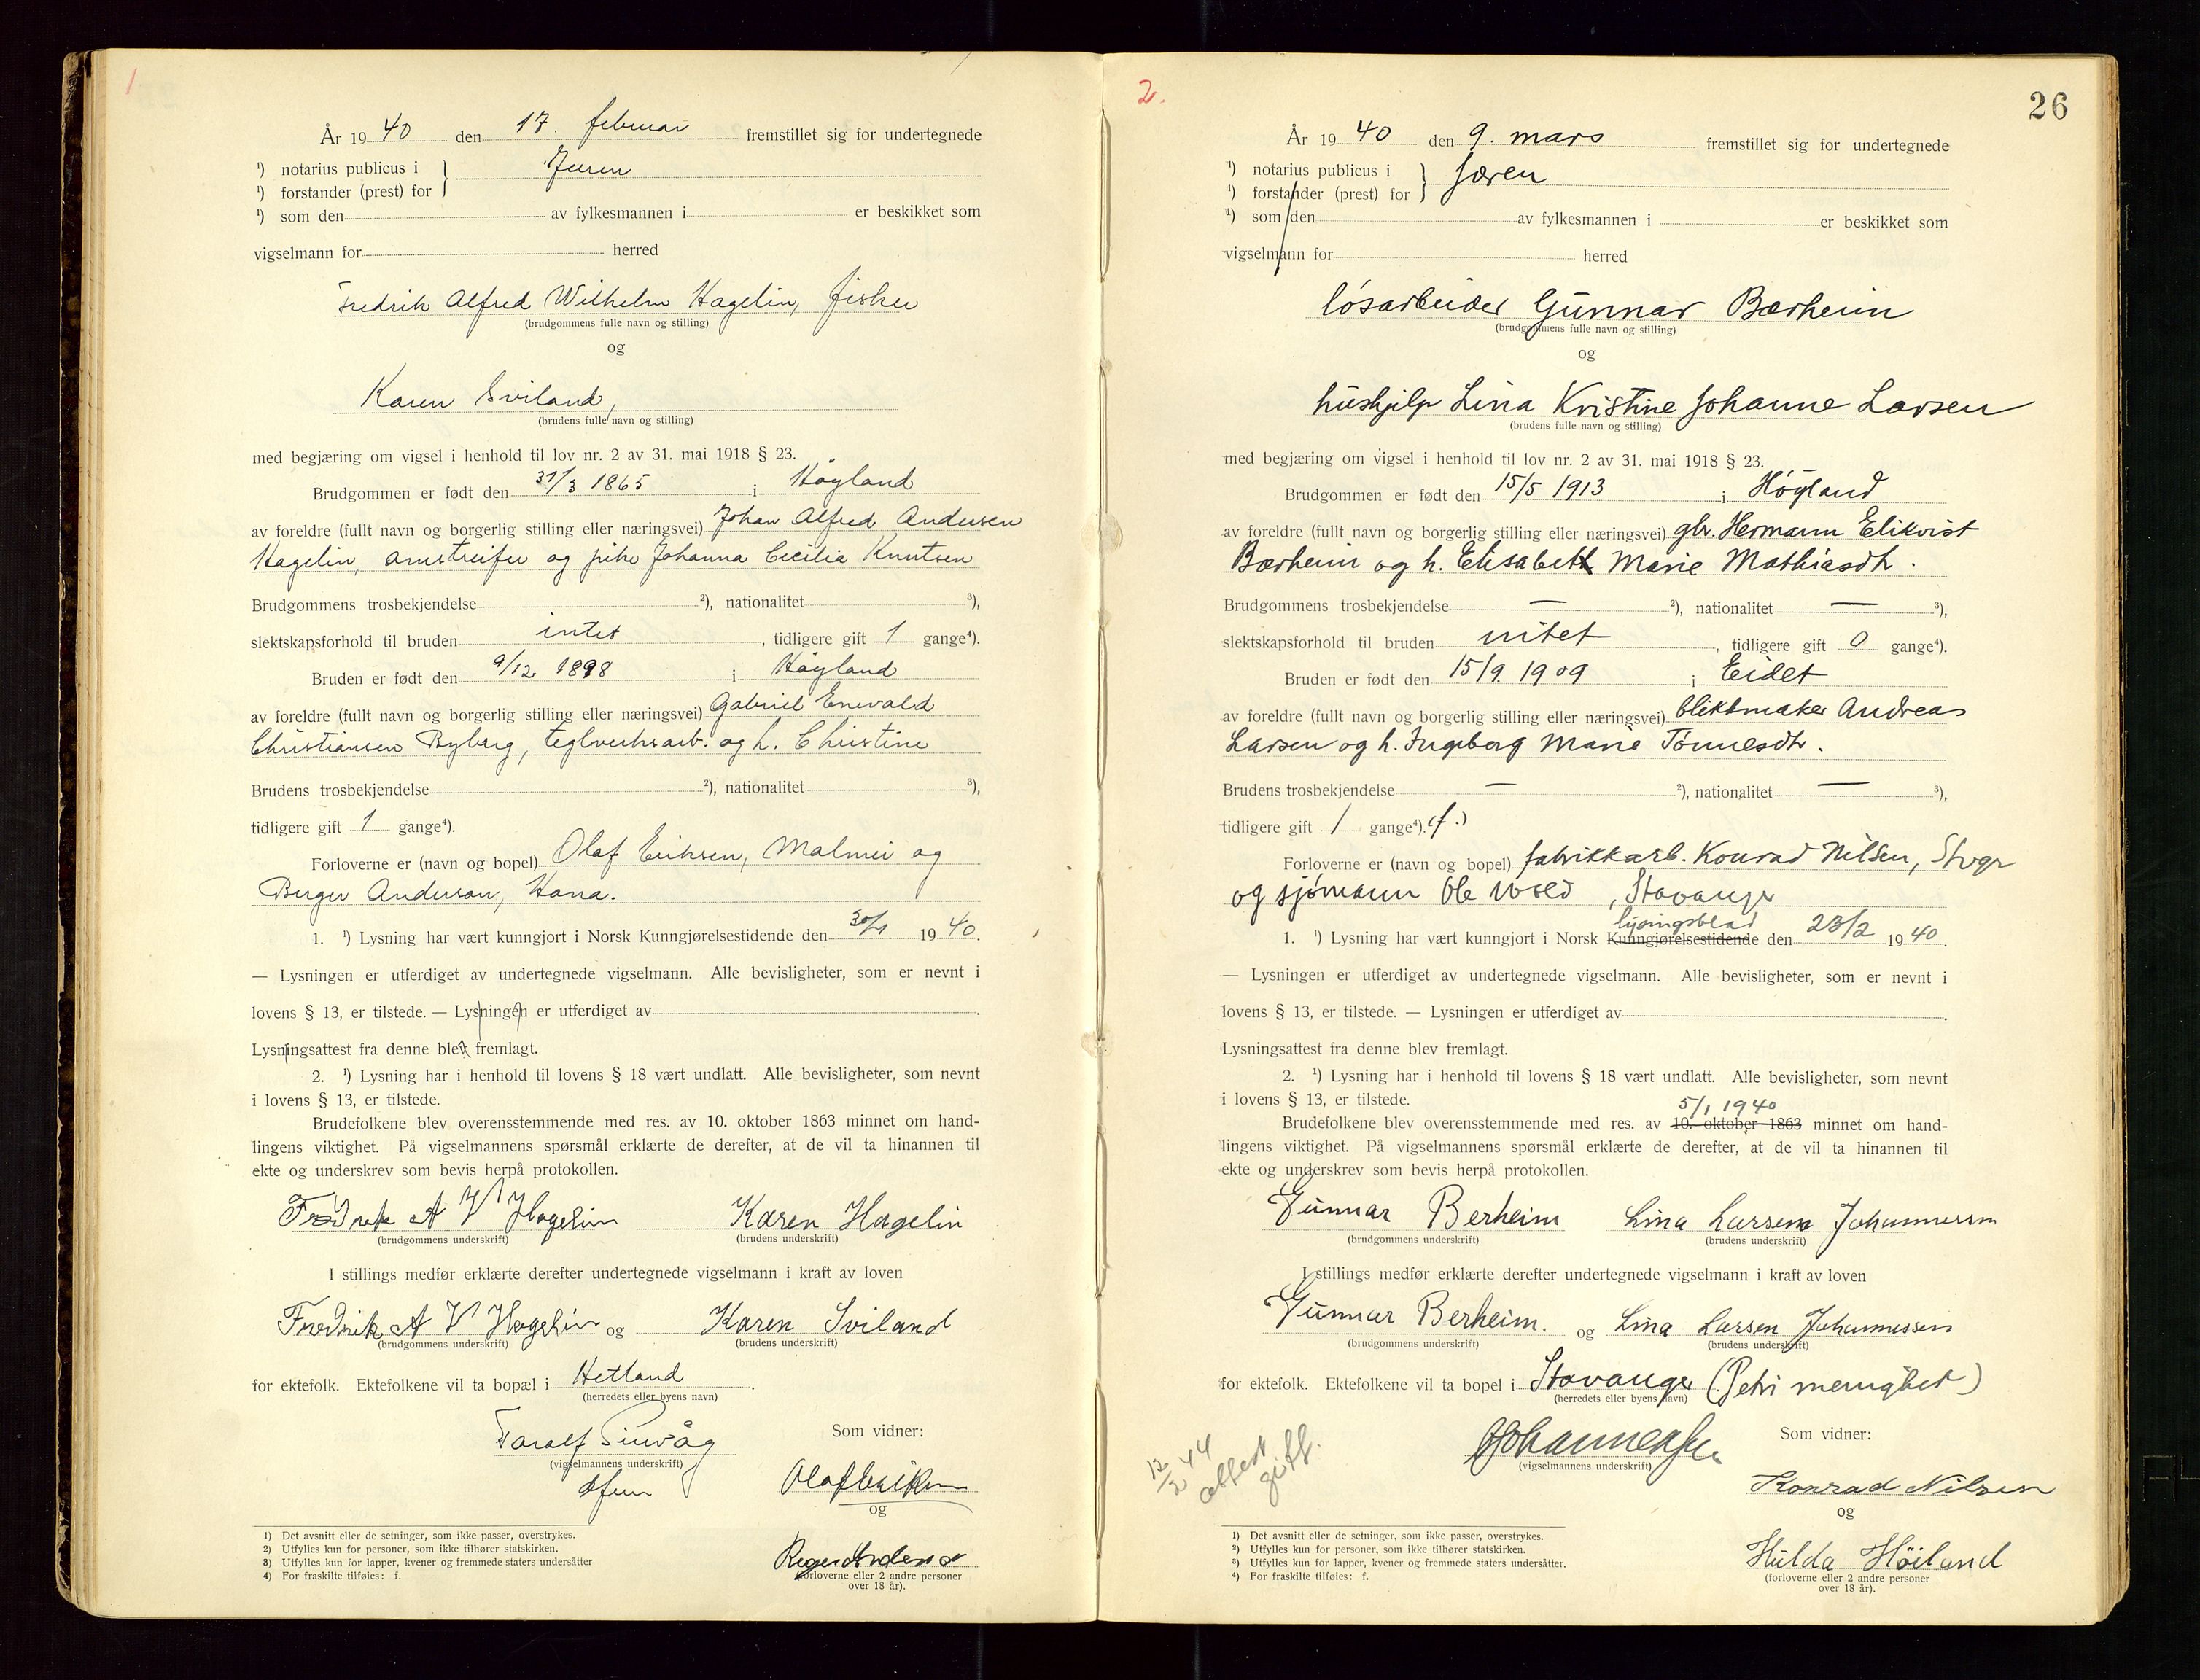 1
År 1940 den 17. februar fremstillet sig for undertegnede
¹) notarius publicus i } Jæren
¹) forstander (prest) for
¹) som den av fylkesmannen i er beskikket som
vigselmann for herred
Fredrik Alfred Wilhelm Hagelin, fisker
(brudgommens fulle navn og stilling)
og
Karen Sviland,
(brudens fulle navn og stilling)
med begjæring om vigsel i henhold til lov nr. 2 av 31. mai 1918 § 23.
Brudgommen er født den 31/3 1865 i Høyland
av foreldre (fullt navn og borgerlig stilling eller næringsvei) Johan Alfred Andersen
Hagelin, omstreifer og pike Johanna Cecilia Knutsen
Brudgommens trosbekjendelse ²), nationalitet ³),
slektskapsforhold til bruden intet, tidligere gift 1 gange⁴).
Bruden er født den 9/12 1898 i Høyland
av foreldre (fullt navn og borgerlig stilling eller næringsvei) Gabriel Enevald
Christiansen Byberg, teglverksarb. og h. Christine
Brudens trosbekjendelse ²), nationalitet ³),
tidligere gift 1 gange⁴).
Forloverne er (navn og bopel) Olaf Eriksen, Malmei og
Berger Anderson, Hana.
1. ¹) Lysning har vært kunngjort i Norsk Kunngjørelsestidende den 30/1 1940.
— Lysningen er utferdiget av undertegnede vigselmann. Alle bevisligheter, som er nevnt i
lovens § 13, er tilstede. — Lysningen er utferdiget av
Lysningsattest fra denne blev fremlagt.
2. ¹) Lysning har i henhold til lovens § 18 vært undlatt. Alle bevisligheter, som nevnt
i lovens § 13, er tilstede.
Brudefolkene blev overensstemmende med res. av 10. oktober 1863 minnet om hand-
lingens viktighet. På vigselmannens spørsmål erklærte de derefter, at de vil ta hinannen til
ekte og underskrev som bevis herpå protokollen.
Fredrik A V Hagelin Karen Hagelin
(brudgommens underskrift) (brudens underskrift)
I stillings medfør erklærte derefter undertegnede vigselmann i kraft av loven
Fredrik A V Hagelin og Karen Sviland
(brudgommens underskrift) (brudens underskrift)
for ektefolk. Ektefolkene vil ta bopæl i Hetland.
(herredets eller byens navn)
Taralf
Som vidner:
(vigselmannens underskrift)
Olaf Eriksen
og
(forloverne eller 2 andre personer
over 18 år).
1) Det avsnitt eller de setninger, som ikke passer, overstrykes.
2) Utfylles kun for personer, som ikke tilhører statskirken.
3) Utfylles kun for lapper, kvener og fremmede staters undersåtter
4) For fraskilte tilføies: f.
2.
26
År 1940 den 9. mars fremstillet sig for undertegnede
¹) notarius publicus i } Jæren
¹) forstander (prest) for
¹) som den av fylkesmannen i er beskikket som
vigselmann for herred
løsarbeider Gunnar Bærheim
(brudgommens fulle navn og stilling)
og
hushjelp Lina Kristine Johanne Larsen
(brudens fulle navn og stilling)
med begjæring om vigsel i henhold til lov nr. 2 av 31. mai 1918 § 23.
Brudgommen er født den 15/5 1913 i Høyland
av foreldre (fullt navn og borgerlig stilling eller næringsvei) gbr. Hermann Elikvist
Bærheim og h. Elisabeth Marie Mathiasdtr.
Brudgommens trosbekjendelse — ²), nationalitet — ³),
slektskapsforhold til bruden intet, tidligere gift 0 gange⁴).
Bruden er født den 15/9. 1909 i Eidet
av foreldre (fullt navn og borgerlig stilling eller næringsvei) blikkmaker Andreas
Larsen og h. Ingeborg Marie Tønnesdtr.
Brudens trosbekjendelse — ²), nationalitet — ³),
tidligere gift 1 gange⁴). (f.)
Forloverne er (navn og bopel) fabrikkarb. Konrad Nilsen, Stvgr
og sjømann Ole Wold, Stavanger
lysingsblad
1. ¹) Lysning har vært kunngjort i Norsk Kunngjørelsestidende den 23/2 1940.
— Lysningen er utferdiget av undertegnede vigselmann. Alle bevisligheter, som er nevnt i
lovens § 13, er tilstede. — Lysningen er utferdiget av
Lysningsattest fra denne blev fremlagt.
2. ¹) Lysning har i henhold til lovens § 18 vært undlatt. Alle bevisligheter, som nevnt
i lovens § 13, er tilstede.
5/1 1940
Brudefolkene blev overensstemmende med res. av 10. oktober 1863 minnet om hand-
lingens viktighet. På vigselmannens spørsmål erklærte de derefter, at de vil ta hinannen til
ekte og underskrev som bevis herpå protokollen.
Gunnar Berheim Lina Larsen Johannessen
(brudgommens underskrift) (brudens underskrift)
I stillings medfør erklærte derefter undertegnede vigselmann i kraft av loven
Gunnar Berheim. og Lina Larsen Johannessen
(brudgommens underskrift) (brudens underskrift)
for ektefolk. Ektefolkene vil ta bopel i Stavanger (Petri menighet)
(herredets eller byens navn)
12/2 44 attest gitt.
Johannessen
Som vidner:
(vigselmannens underskrift)
Konrad Nilsen
og
Hulda Höiland
(forloverne eller 2 andre personer
over 18 år).
1) Det avsnitt eller de setninger, som ikke passer, overstrykes.
2) Utfylles kun for personer, som ikke tilhører statskirken.
3) Utfylles kun for lapper, kvener og fremmede staters undersåtter.
4) For fraskilte tilføies: f.